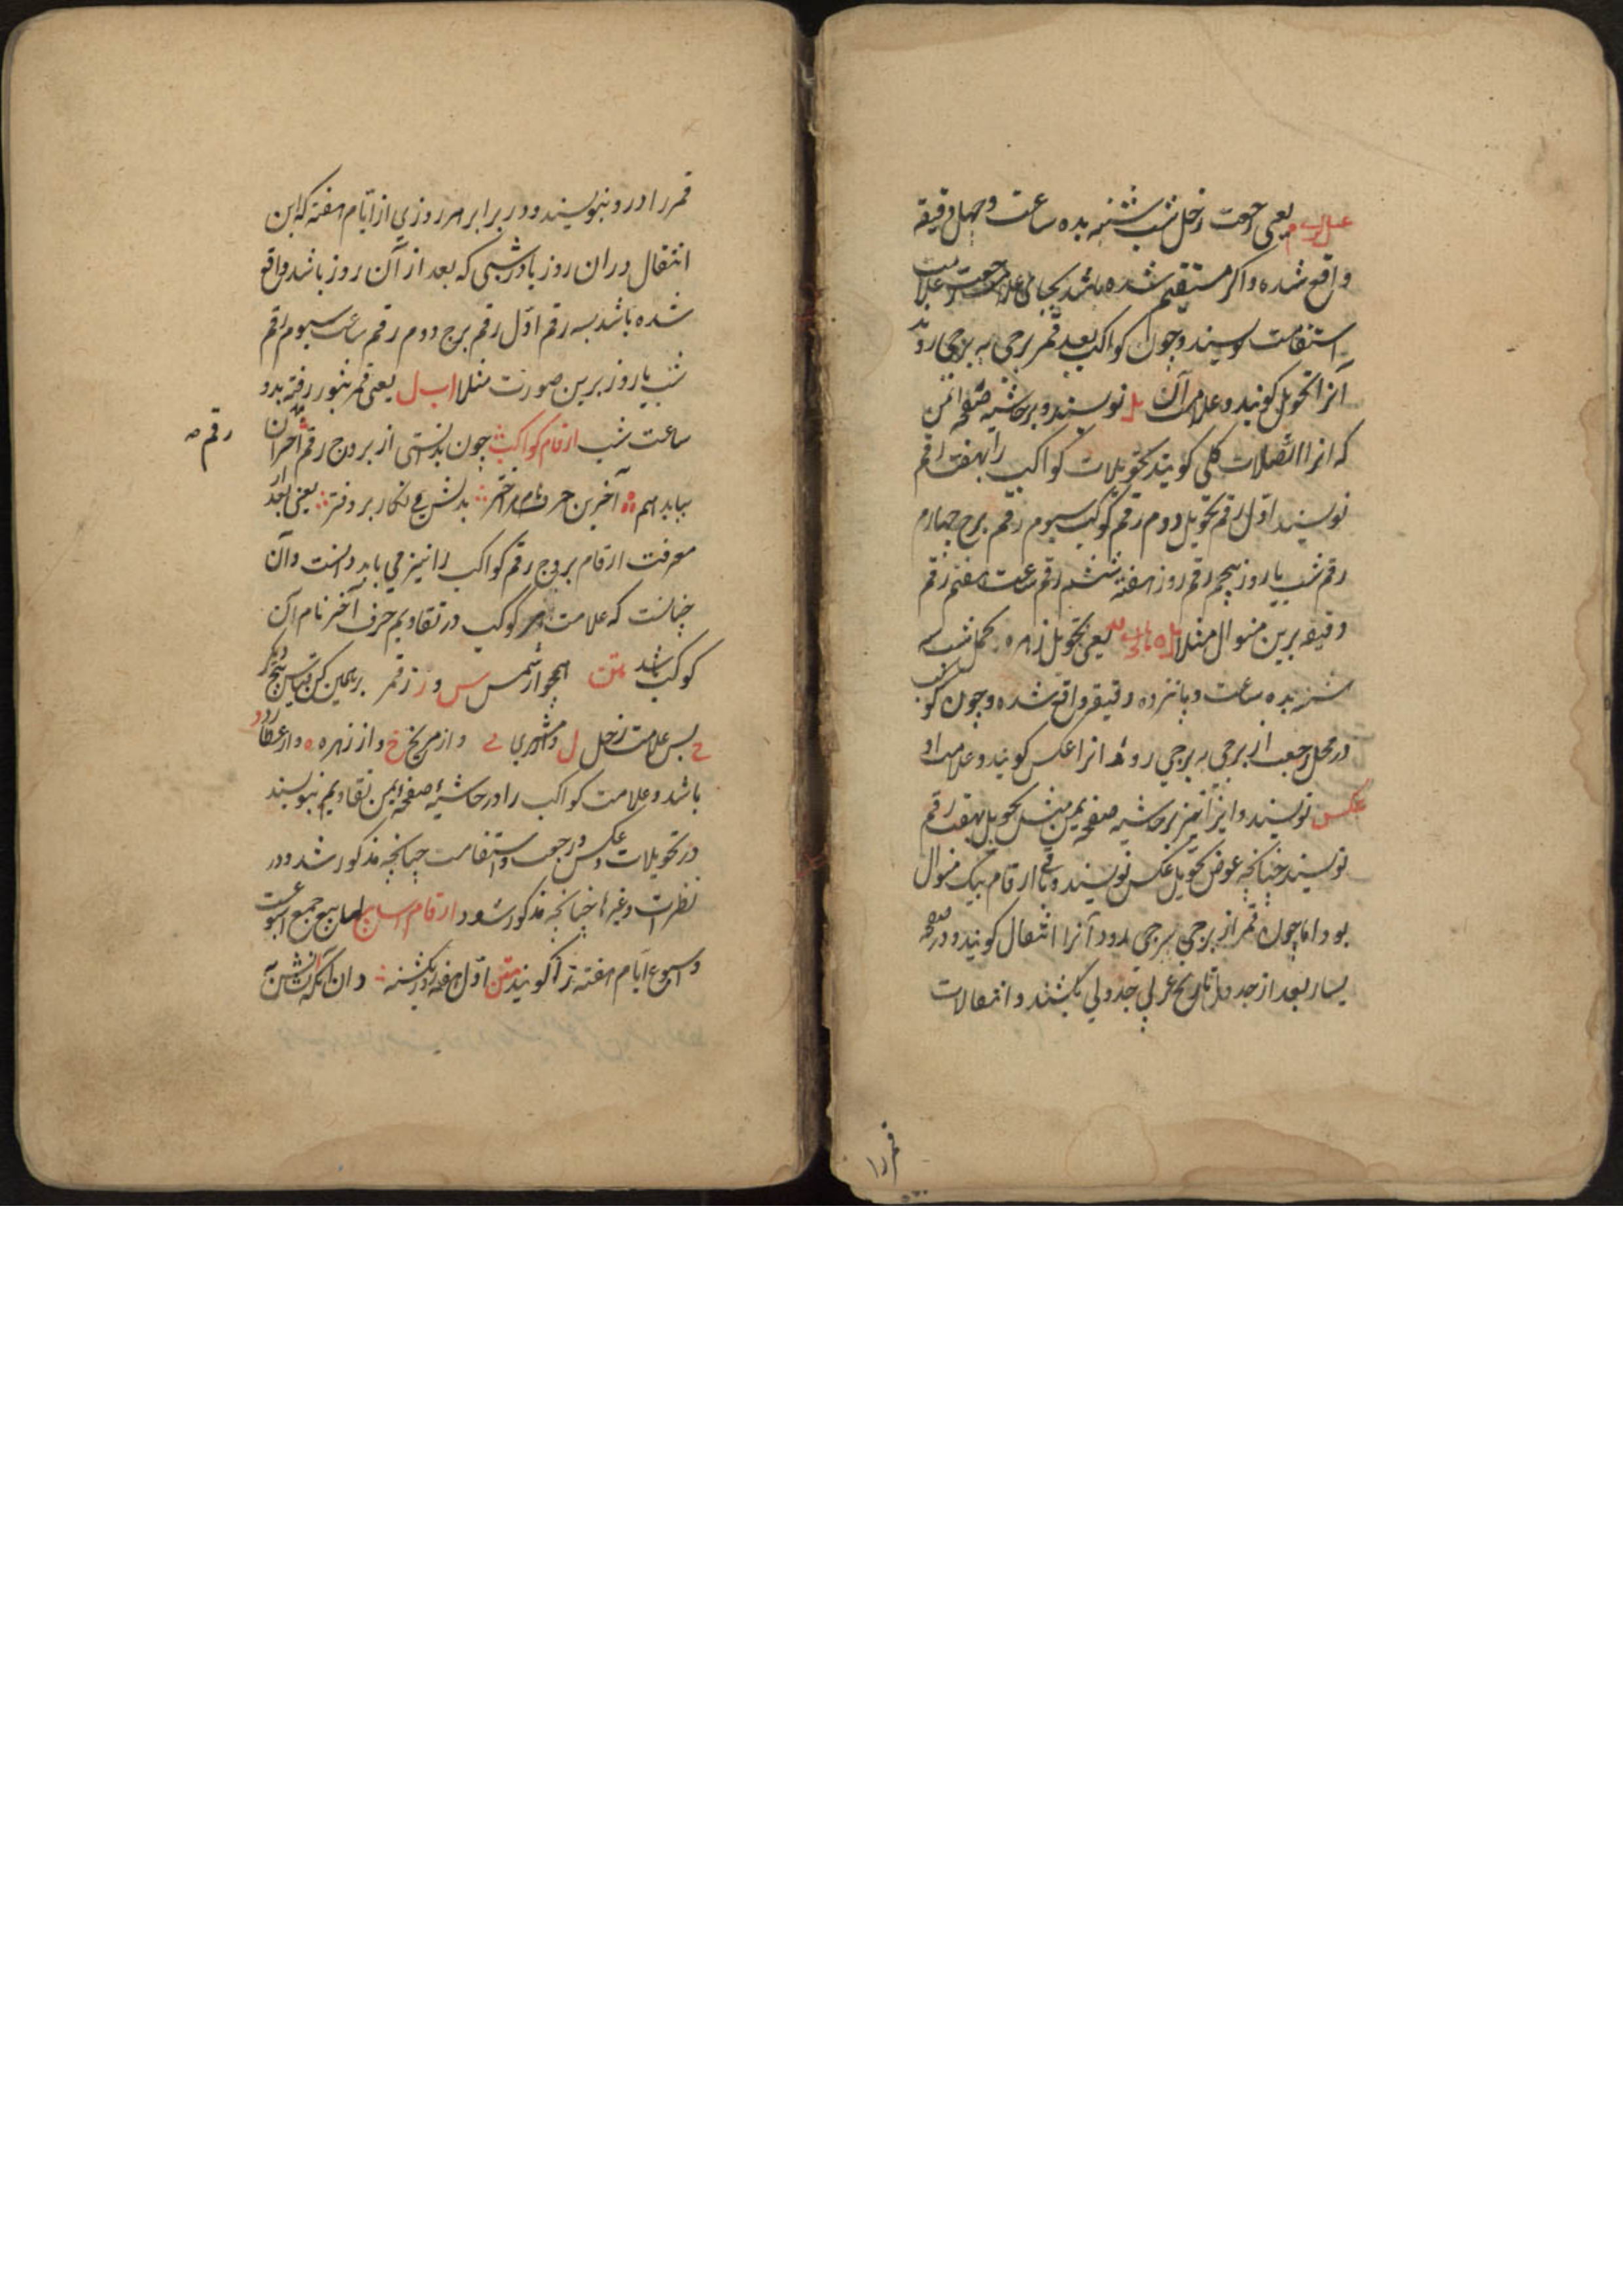 یعنی رجعت زحل شب شنبه بده ساعت و چهل دقیقه
واقع شده و اکر مستقیم شده باشد بجای علامت رجعت علامت
استقامت نویسند و چون کواکب بعد قمر برجی به برجی روند
آنرا تحویل کویند و علامت آن یل نویسند و بر حاشیه صفحه ایمن
که انرا اتصالات کلی کویند تحویلات کواکب را بهفت رقم
نویسند اول رقم تحویل دوم رقم کوکب سیوم رقم برج چهارم
رقم شب یا روز پنجم رقم روز هفته ششم رقم ساعت هفتم رقم
دقیقه برین منوال مثلا یعنی تحویل زهره بحمل شب سه
شنبه بده ساعت و پانزده دقیقه واقع شده و چون کوکب
در محل رجعت از برجی به برجی رود انرا عکس کویند و علامت او
عکس نویسند و این را نیز بر حاشیه صفحه یمین مثل تحویل بهفت رقم
نویسند چنانچه عوض تحویل عکس نویسند و باقی ارقام بیک منوال
بود اما چون قمر از برجی ببرجی رود آنرا انتقال کویند و در صفحه
یسار بعد از جدول تاریخ عربی جدولی بکشند و انتقالات
قمر را
قمر را در و بنویسند و در برابر هر روزی از ایام هفته که این
انتقال دران روز یا در شبی که بعد از آن روز باشد واقع
شده باشد بسه رقم اول رقم برج دوم رقم ساعت سیوم رقم
شب یا روز برین صورت مثلا ا ب ل یعنی قمر بثور رفته بدو
ساعت شب ارقام کواکب چون بدانستی از بروج رقم آخر آن
رقم
بباید هم آخرین حرف بدلش می نکار بر دفتر یعنی بعد از
معرفت ارقام بروج رقم کواکب را نیز می باید دانست و آن
چنانست که علامت هر کوکب در تقاویم حرف آخر نام آن
کوکب باشد متن همچو از شمس س و ر ز قمر بر همین کن قیاس پنج دکر
پس علامت زحل ل و مشتری ی و از مریخ خ و از زهره ه و از عطارد د
باشد و علامت کواکب را در حاشیه صفحه ایمن تقاویم بنویسند
در تحویلات و عکس و رجعت و استقامت چنانچه مذکور شد و در
نظرات و غیرها چنانچه مذکور شود ارقام اسابیع اسابیع جمع اسبوعست
و اسبوع ایام هفته را کویند متن اول هفته روز یکشنبه دان آنکه